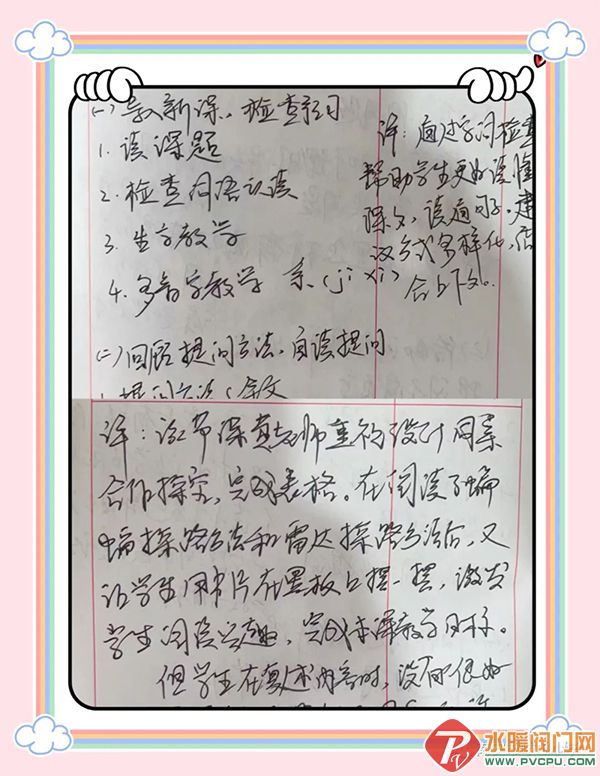 (一) 导入新课、检查预习
1. 读课题
2. 检查词语认读
3. 生字教学
4. 多音字教学 系(jì xì)
评：通过字词检查
帮助学生更好读懂
课文，读通句子。建
议方式多样化，结
合上下文。
(二) 回顾提问方法，自读提问
1. 提问方法
评：这节课老师重构设计问系
合作探究，完成表格。在阅读了蝙
蝠探路方法和雷达探路方法后，又
让学生用卡片在黑板上摆一摆，激发
学生阅读兴趣，完成本课教学目标。
但学生在复述内容时，没有很好
水暖阀门网
WWW.PVCPU.COM